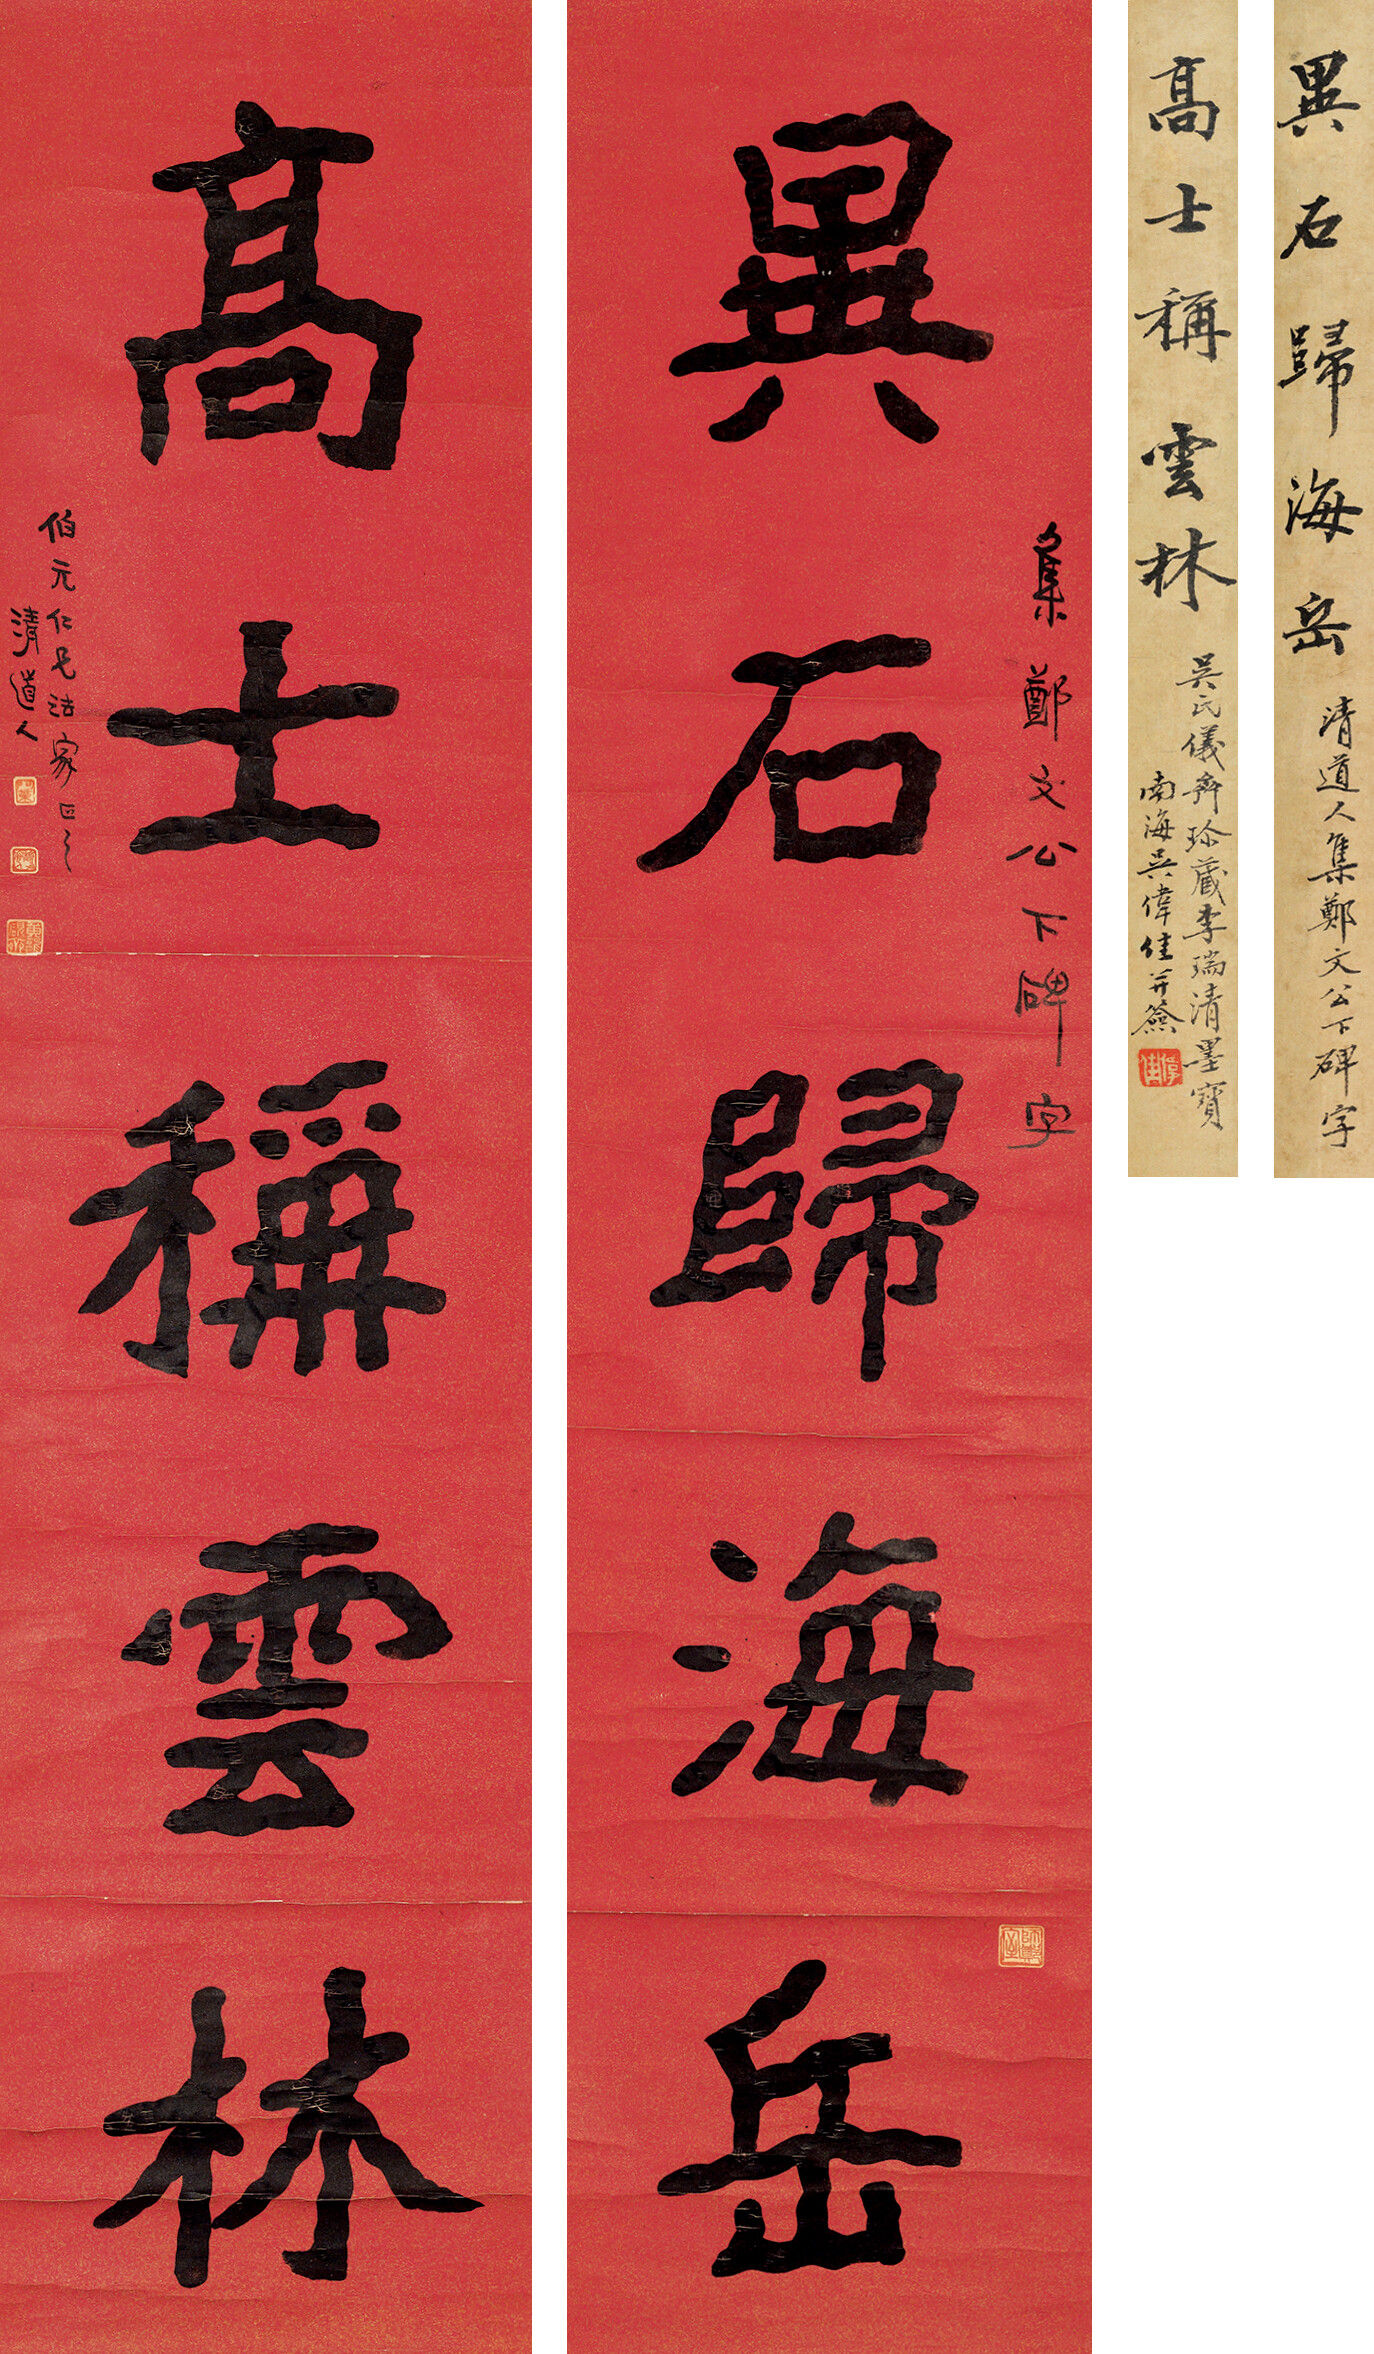 異石歸海岳
集鄭文公下碑字
高士稱雲林
伯元仁兄法家正之
清道人
異石歸海岳
清道人集鄭文公下碑字
高士稱雲林
吴氏儀斋珍藏李瑞清墨寶
南海吴偉佳并簽